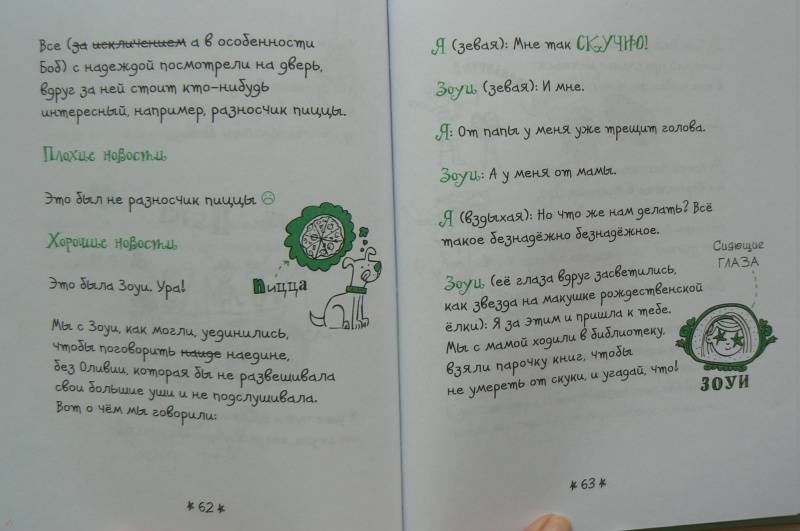 Все (за исключением а в особенности
Боб) с надеждой посмотрели на дверь,
вдруг за ней стоит кто-нибудь
интересный, например, разносчик пиццы.
Плохие новости
Это был не разносчик пиццы ☹
Хорошие новости
Это была Зоуи. Ура!
пицца
Мы с Зоуи, как могли, уединились,
чтобы поговорить наиде наедине,
без Оливии, которая бы не развешивала
свои большие уши и не подслушивала.
Вот о чём мы говорили:
* 62 *
Я (зевая): Мне так СКУЧНО!
Зоуи (зевая): И мне.
Я: От папы у меня уже трещит голова.
Зоуи: А у меня от мамы.
Я (вздыхая): Но что же нам делать? Всё
такое безнадёжно безнадёжное.
Сияющие
ГЛАЗА
Зоуи (её глаза вдруг засветились,
как звезда на макушке рождественской
ёлки): Я за этим и пришла к тебе.
Мы с мамой ходили в библиотеку,
взяли парочку книг, чтобы
не умереть от скуки, и угадай, что!
ЗОУИ
* 63 *